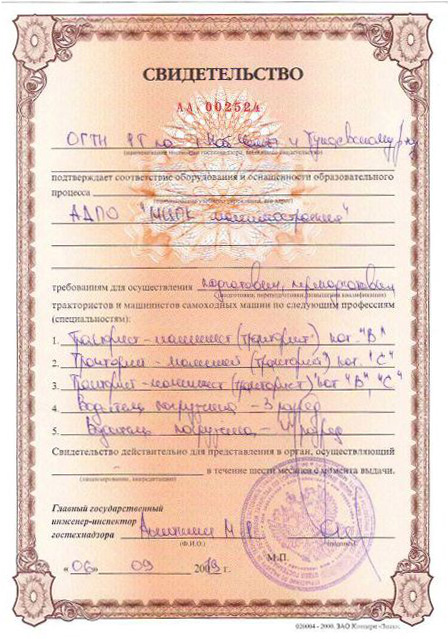 СВИДЕТЕЛЬСТВО
АА 002524
ОГТН РТ по г. Наб. Челны и Тукаевскому р-ну
подтверждает соответствие оборудования и оснащенности образовательного
процесса
АДПО "МИПК машиностроения"
требованиям для осуществления подготовки, переподготовки
(подготовки, переподготовки, повышения квалификации)
трактористов и машинистов самоходных машин по следующим профессиям
(специальностям):
1. Тракторист-машинист (тракторист) кат. "В"
2. Тракторист-машинист (тракторист) кат. "С"
3. Тракторист-машинист (тракторист) кат "В", "С"
4. Водитель погрузчика - 3 разряд
5. Водитель погрузчика - 4 разряд
Свидетельство действительно для представления в орган, осуществляющий
(лицензирование, аккредитацию)
в течение шести месяцев с момента выдачи.
Главный государственный
инженер-инспектор
гостехнадзора
(Ф.И.О.)
(подпись)
М.П.
« 06 » 09 г.
©20004 - 2000. ЗАО Концерн «Знак».